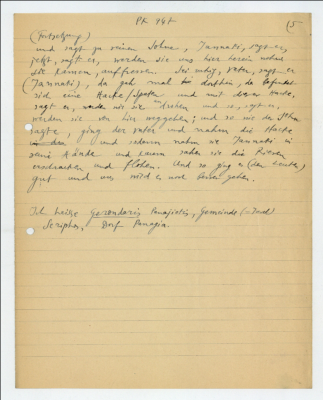 PK 147
(5
(Fortsetzung)
und sagt zu seinem Sohne, Jannati, sagt er,
jetzt, sagt er, werden sie uns hier herein
sie kamen, auffressen. Sei ruhig, Vater, sagt er
(Jannati), da geh mal dorthin, da befindet
sich eine Hacke/Spaten und mit dieser Hacke,
sagt er, wie drehen und so, sagt er,
werden sie von hier weggehen; und so wie der Sohn
sagte, ging der Vater und nahm die Hacke
in den und nahm Jannati in
seine Hände und kaum sahen sie die Riesen
erschraken und flohen. Und so ging es (den Leuten)
gut und uns wird es noch besser gehen.
Ich heiße Gerondaris Panajiotis, Gemeinde (= Insel)
Seriphos, Dorf Panagia.